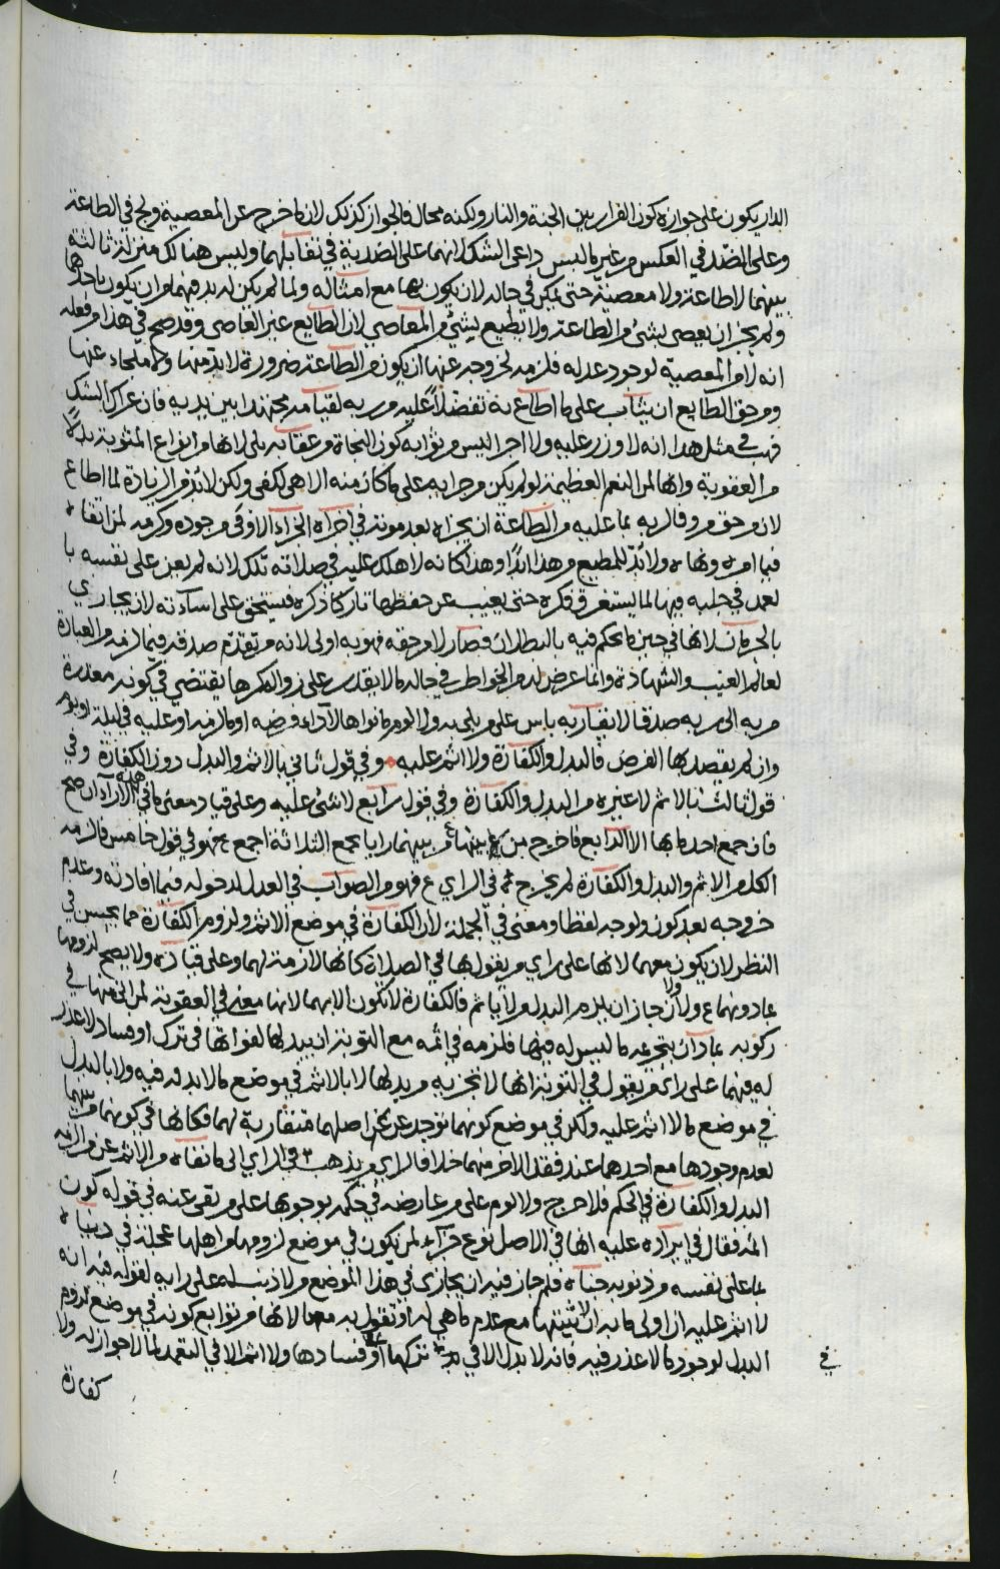 الدار يكون على جوازه كون القرار بين الجنة والنار ولكنه محال فالجواز كذلك لان ما خرج عن المعصية ولج في الطاعة
وعلى الضد في العكس من غير ما لبس داعي الشك لانهما على الضدية في تقابلهما وليس هنالك منزلة ثالثة
بينهما لا طاعة ولا معصية حتى يمكن في حاله لان يكون بها مع امثاله ولما لم يكن له بد فيهما من ان يكون باحدهما
ولم يجز ان يعصي بشيء من الطاعة ولا يطيع بشيء من المعاصي لان الطايع غير العاصي وقد صح في هذا من فعله
انه لا من المعصية لوجود عدله فلزمه لخروجه عنها ان يكون من الطاعة ضرورة لا بد منها ولا ملجاء عنها
ومن حق الطايع ان يثاب على ما اطاع به تفضلا عليه من ربه لقيامه مجتهدا بين يديه فان عراك الشك
فهب في مثل هذا انه لا وزر عليه ولا اجر اليس من ثوابه كون النجاة من عقابه بلى انها من انواع المثوبة بدلا
من العقوبة وانها لمن النعم العظيمة لو لم يكن من جزايه على ما كان منه الا هي لكفى ولكن لا بد من الزيادة لما اطاع
لان من حق من وفا لربه بما عليه من الطاعة ان يجزاه بعد موته في اخراه الجزاء الاوفى من جوده وكرمه لمن اتقاه
فيما امره ونهاه ولا بد للمطيع من هذا ابدا وهذا كانه لا هلك عليه في صلاته تلك لانه لم يعن على نفسه با
لعمد في جلبه فيها لما يستغرق فكره حتى يغيب عن حفظها تاركا ذكره فيستحق على اساءته لان يجازي
بالحرمان لانها في حين ما يحكم فيه بالبطلان فصار لا من حقه فهو به اولى لانه من يقدم صدقه فيما لزمه من العبادة
لعالم الغيب والشهادة وانما عرض له من الخواطر في حاله ما لا يقدر على زواله كرها يقتضي في كونه معذرة
من به الى ربه صدقا لا يضاربه باس على من بلي به ولا لوم ما نواها لاداء فرضه او ما لزمه او عليه في ليلة او يوم
وان لم يقصد بها الفرض فالبدل والكفارة ولا اثم عليه وفي قول ثاني بالاثم والبدل دون الكفارة وفي
قول ثالث بالاثم لا غيره من البدل والكفارة وفي قول رابع لا شيء عليه وعلى قياد معنى ما في هذه الاراء ان صح
فان جمع احد ما بها الا الرابع فاخرج من بينها بينهما رايا بجمع الثلاثة اجمع فهو في قول خامس فالزمه
الكل من الاثم والبدل والكفارة لم يخرج في الراي ع فهو من الصواب في العدل لدخوله فيما افادته وعدم
خروجه بعد كون ولوجه لفظا ومعنى في الجملة لان الكفارة في موضع الاثم ولزوم الكفارة مما يحسن في
النظر لان يكون معهما لانها على راي من يقول بها في الصلاة كانها لازمة لهما وعلى قياده ولا يصح لزومها
عادونهما ع ولان جاز ان يلزم البدل ولا ياثم فالكفارة لا تكون الا بهما لانها معنى في العقوبة لمن اتى منها في
ركوبه عادان يتجرعه ما ليس له فيها فلزمه في اثمه مع التوبة ان يبدلها لفواتها في ترك او فساد لا عذر
له فيهما على راي من يقول في التوبة انها لا تجزيه من بدلها لا بالاثم في موضع ما لا بدل فيه ولا بالبدل
في موضع ما لا اثم عليه ولكن في موضع كونهما توجد عن اصلهما متقاربة لهما فكانها في كونهما من بينهما
لعدم وجودها مع احدهما عند فقد الاخر منهما خلافا لراي من يذهب في الراي الى ما نفاه من الاثم عن من الزمه
البدل والكفارة في الحكم فلا حرج ولا لوم على من عارضه في حكمه بوجوبها على من بقى عنه في قوله كون
اثمه فقال في ايراده عليه انها في الاصل نوع جزاء لمن يكون في موضع لزومها من اهلها عجلة في دنياه
بما على نفسه من ذنوبه جناه فلم جاز فيه ان يجازي في هذا الموضع من لا ذنب له على رايه لقوله فيه انه
لا اثم عليه ان اولى ما به ان لا يثبتها مع عدم ما هي له او تقول به معها لانها من توابع كونه في موضع لزوم
البدل لوجود ما لا عذر فيه فانه لا بدل الا في تركها او فسادها ولا اثم الا في التعمد لما لا جواز له ولا
في
كفارة